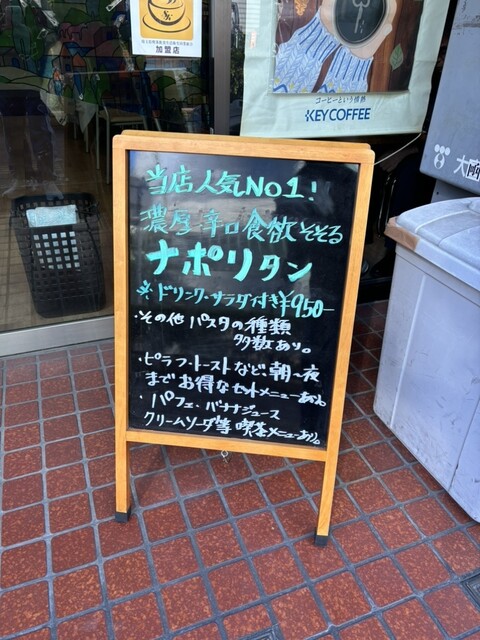 加盟店
コーヒーという情熱
KEY COFFEE
当店人気NO1!
濃厚辛口食欲そそる
ナポリタン
※ドリンク・サラダ付き¥950-
・その他パスタの種類
多数あり。
・ピラフ・トーストなど朝~夜
までお得なセットメニューあり
・パフェ・バナナジュース
クリームソーダ等喫茶メニューあり。